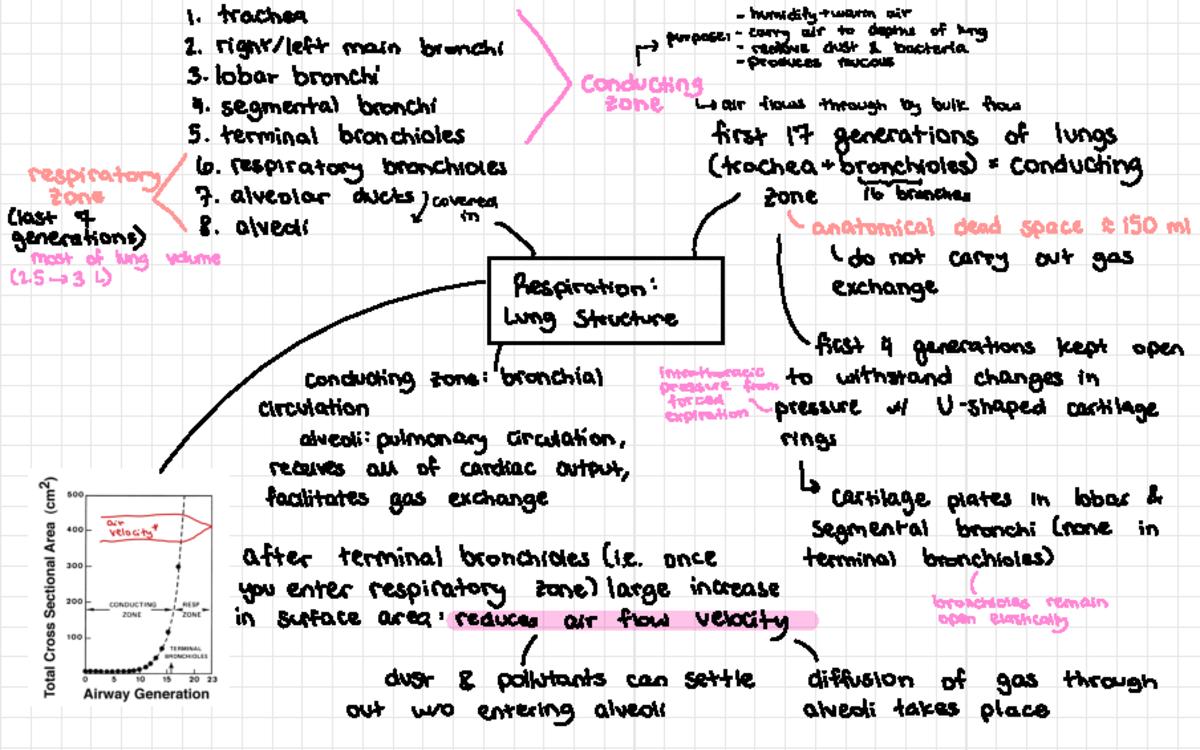 1. trachea
2. right/left main bronchi
3. lobar bronchi
4. segmental bronchi
5. terminal bronchioles
6. respiratory bronchioles
7. alveolar ducts
8. alveoli
covered
in
respiratory
zone
(last 7
generations)
most of lung volume
(2.5→3 L)
conducting
zone
purpose:
- humidify + warm air
- carry air to depths of lung
- remove dust & bacteria
- produces mucous
↳ air flows through by bulk flow
first 17 generations of lungs
(trachea + bronchioles) = conducting
zone
16 branches
anatomical dead space ≈ 150 ml
↳ do not carry out gas
exchange
Respiration:
Lung Structure
first 4 generations kept open
to withstand changes in
pressure w/ U-shaped cartilage
rings
pressure from
forced
expiration
↳ cartilage plates in lobar &
segmental bronchi (none in
terminal bronchioles)
bronchioles remain
open elastically
conducting zone: bronchial
circulation
alveoli: pulmonary circulation,
receives all of cardiac output,
facilitates gas exchange
after terminal bronchioles (i.e. once
you enter respiratory zone) large increase
in surface area: reduces air flow velocity
dust & pollutants can settle
out w/o entering alveoli
diffusion of gas through
alveoli takes place
Total Cross Sectional Area (cm²)
500
400
300
200
100
air
velocity
CONDUCTING
ZONE
RESP
ZONE
TERMINAL
BRONCHIOLES
0 5 10 15 20 23
Airway Generation